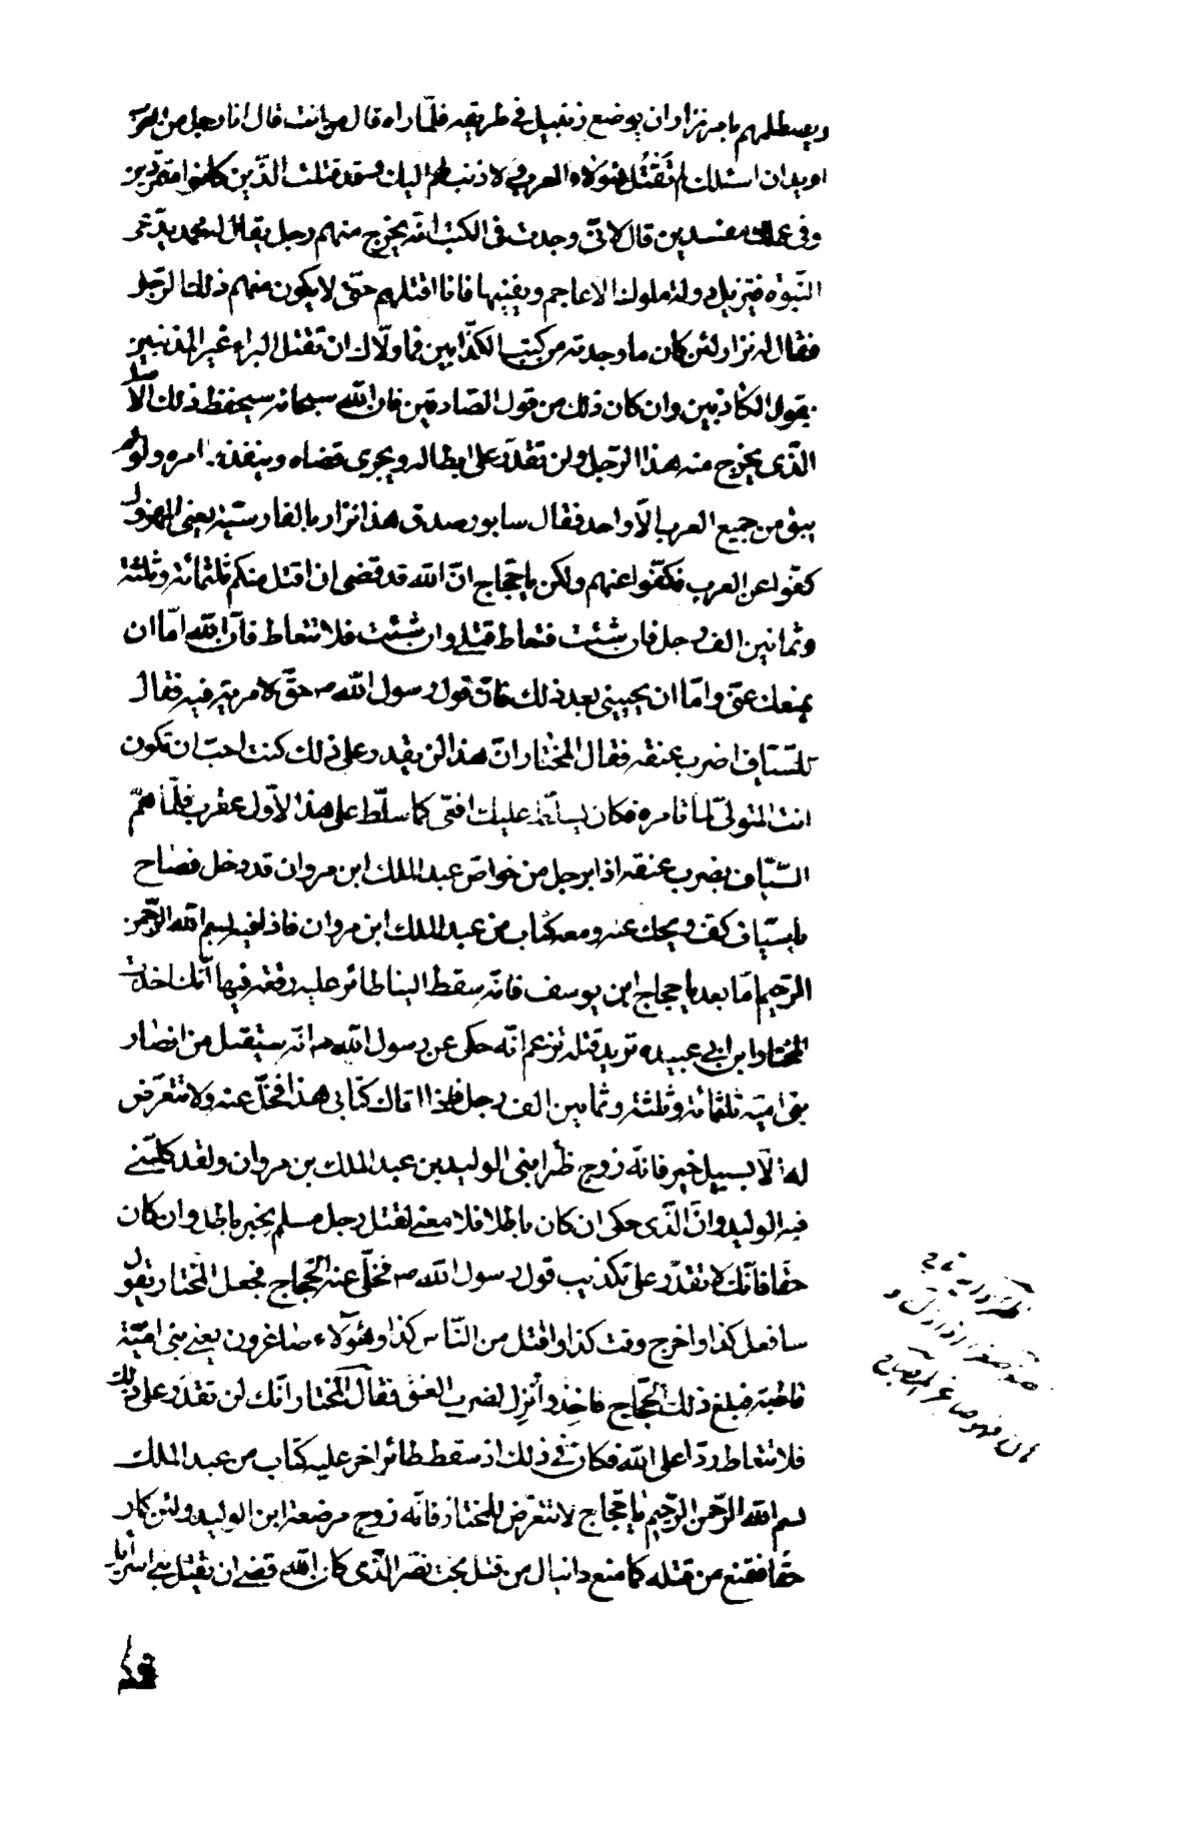 ويصطلمهم امر نزار ان يوضع زنبيل في طريقه فلمّا راه قال من انت قال انا رجل من العرب
اريد ان اسئلك لم تَقْتُل هؤلاء العرب ولا ذنب لهم اليك وقد قتلت الّذين كانوا متمرّدين
وفي عملك مفسدين قال لانّى وجدت في الكتب انّه يخرج منهم رجل يقال له محمد يدّعى
النّبوّة فيزيل دولة ملوك الاعاجم ويفنيها فانا اقتلهم حتّى لا يكون منهم ذلك الرّجل
فقال له نزار لئن كان ما وجدته من كتب الكذّابين فما اولاك ان تقتل البراء غير المذنبين
بقول الكاذبين وان كان ذلك من قول الصّادقين فان الله سبحانه سيحفظ ذلك الاصل
الّذى يخرج منه هذا الرّجل ولن تقدر على ابطاله ويجرى قضاه وينفذ امره ولو لم
يبق من جميع العرب الّا واحد فقال سابور صدق هذا نزار بالفارسيّة يعنى المهزول
كفّوا عن العرب فكفّوا عنهم ولكن يا حجّاج انّ الله قد قضى ان اقتل منكم ثلثمائة وثلثة
وثمانين الف رجل فان شئت فتعاط قتلى وان شئت فلا تتعاط فانّ الله امّا ان
يمنعك عنّى وامّا ان يحيينى بعد ذلك فانّ قول رسول الله ص حقّ لا مرية فيه فقال
للسّيّاف اضرب عنقه فقال المختار انّ هذا لن يقدر على ذلك كنت احبّ ان تكون
انت المتولّى لما تامره فكان يسلّط عليك افعى كما سلّط على هذا الاوّل عقرب فلمّا همّ
السّيّاف بضرب عنقه اذا برجل من خواصّ عبد الملك ابن مروان قد دخل فصاح
يا سيّاف كفّ ويحك عنه ومعه كتاب من عبد الملك ابن مروان فاذا فيه بسم الله الرّحمن
الرّحيم امّا بعد يا حجاج ابن يوسف فانّه سقط الينا طائر عليه رقعة فيها انّك اخذت
المختار ابن ابى عبيده تريد قتله تزعم انّه حكى عن رسول الله ص انّه سيقتل من انصار
بنى اميّة ثلثمائة وثلثة وثمانين الف رجل فاذا اتاك كتابى هذا فخلّ عنه ولا تتعرّض
له الّا بسبيل خير فانّه زوج ظئر ابنى الوليد بن عبد الملك بن مروان ولقد كلّمنى
فيه الوليد وانّ الّذى حكى ان كان باطلا فلا معنى لقتل رجل مسلم بخبر باطل وان كان
حقّا فانّك لا تقدر على تكذيب قول رسول الله ص فخلّى عنه الحجّاج فجعل المختار يقول
سافعل كذا واخرج وقت كذا واقتل من النّاس كذا وهؤلاء صاغرون يعنى بنى اميّة
فبلغ ذلك الحجّاج فاخِذ واُنزِل لضرب العنق فقال المختار انّك لن تقدر على ذلك
فلا تتعاط ردّا على الله فكان في ذلك اذ سقط طائر اخر عليه كتاب من عبد الملك
بسم الله الرّحمن الرّحيم يا حجّاج لا تتعرّض للمختار فانّه زوج مرضعة ابن الوليد ولئن كان
حقّا فتمنع من قتله كما منع دانيال من قتل بخت نصّر الّذى كان الله قضى ان يقتل بنى اسرائيل